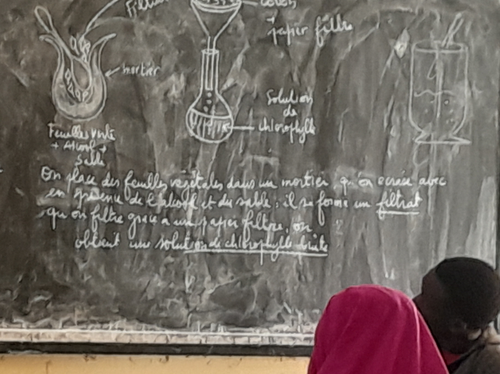 coton
+
papier filtre
mortier
Solution
de
chlorophylle
Feuilles verte
+ Alcool +
Sable
On place des feuilles végétales dans un mortier, qu'on écrase avec
en présence de l'alcool et du sable; il se forme un filtrat
qu'on filtre grâce à un papier filtre, on
obtient une solution de chlorophylle brute